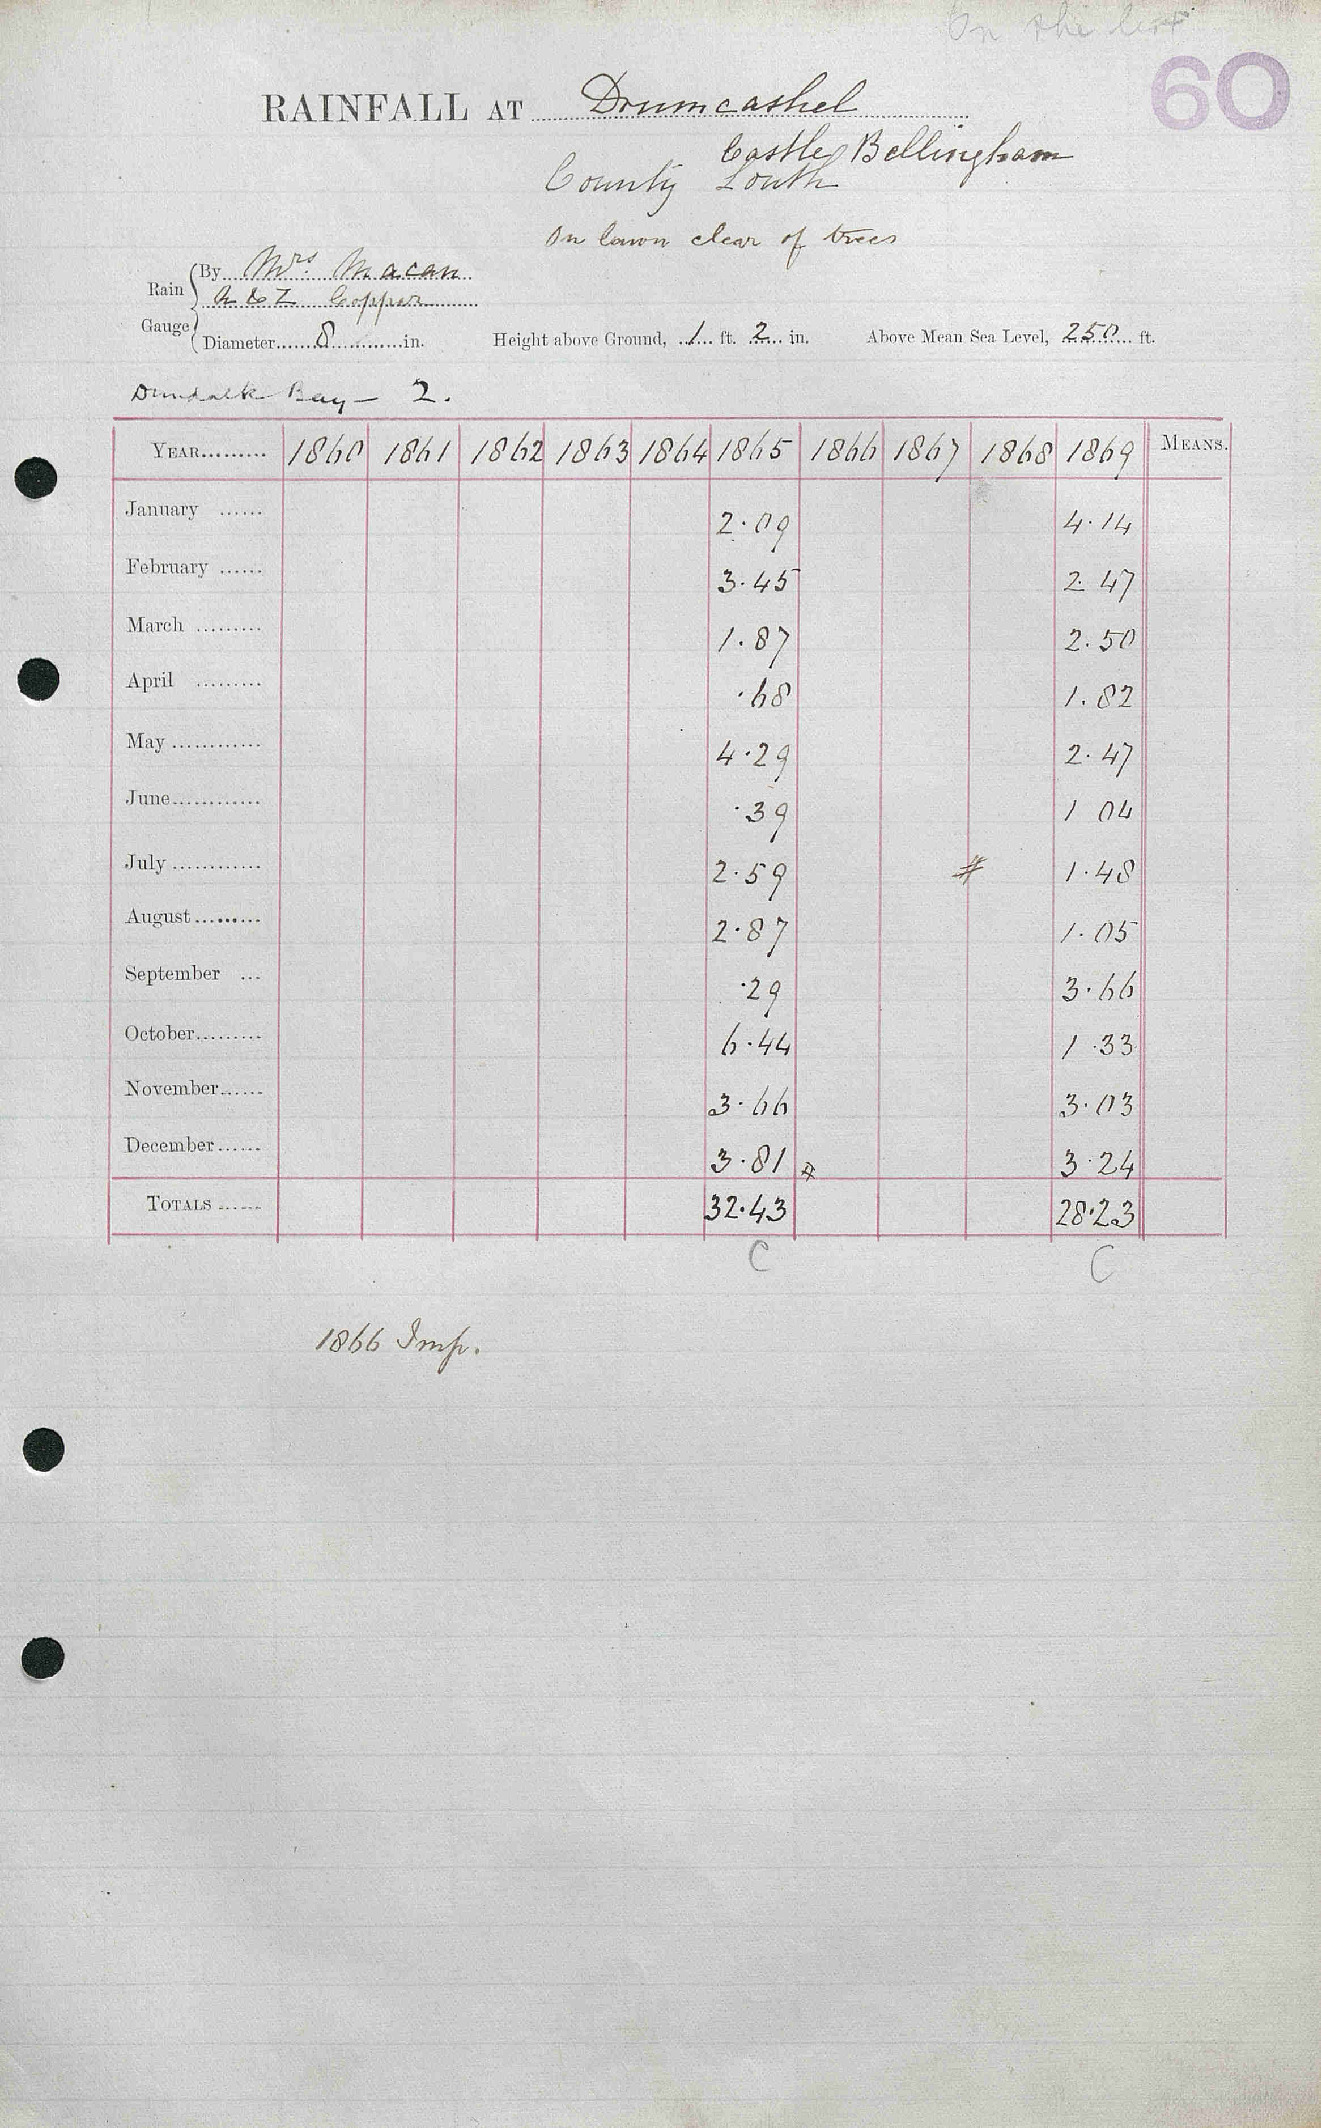 On the list
60
RAINFALL AT Drumcashel
Castle Bellingham
County Louth
On lawn clear of trees
Rain Gauge
By Mrs. Macan
N & Z Copper
Diameter 8 in. Height above Ground, 1 ft. 2 in. Above Mean Sea Level, 250 ft.
Dundalk Bay — 2.
YEAR 1860 1861 1862 1863 1864 1865 1866 1867 1868 1869 MEANS.
January 2.09 4.14
February 3.45 2.47
March 1.87 2.50
April .68 1.82
May 4.29 2.47
June .39 1 04
July 2.59 # 1.48
August 2.87 1.05
September .29 3.66
October 6.44 1.33
November 3.66 3.03
December 3.81 # 3.24
TOTALS 32.43 28.23
C C
1866 Imp.